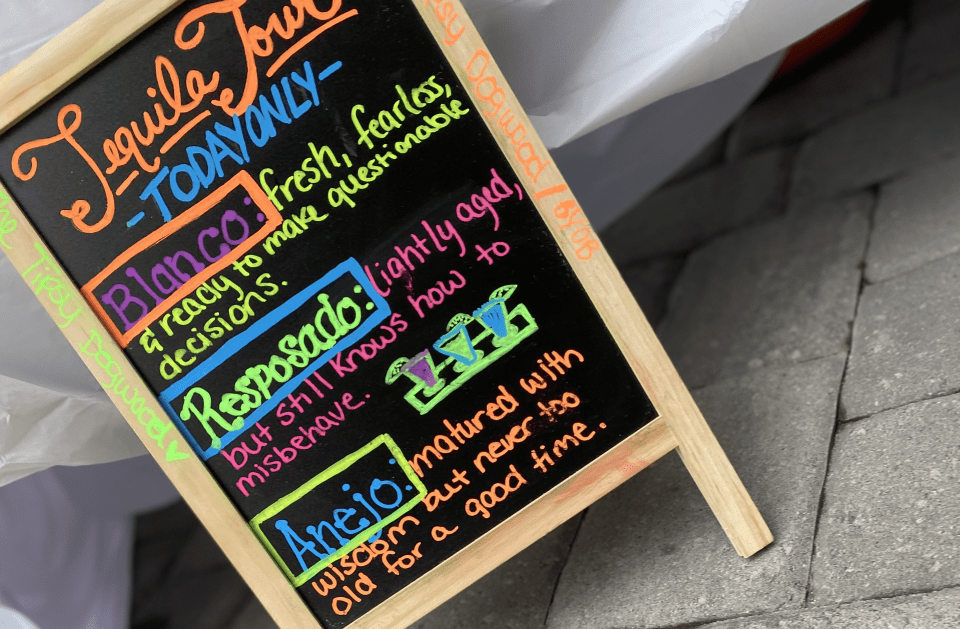 Tequila Tour
-TODAY ONLY-
Blanco: fresh, fearless,
& ready to make questionable
decisions.
Resposado: lightly aged,
but still knows how to
misbehave.
Anejo: matured with
wisdom but never too
old for a good time.
Tipsy Dogwood
Dogwood / BYOB